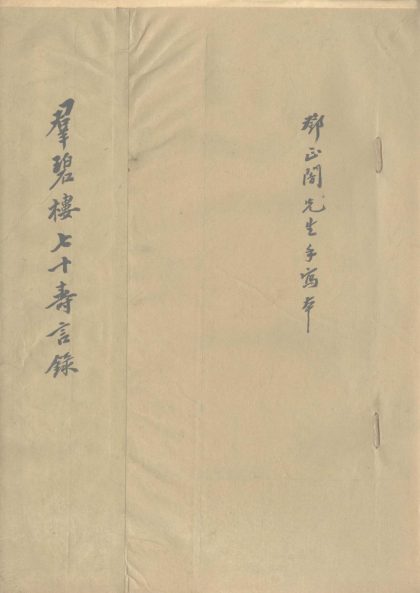 鄧正闇先生手寫本
羣碧樓七十壽言錄